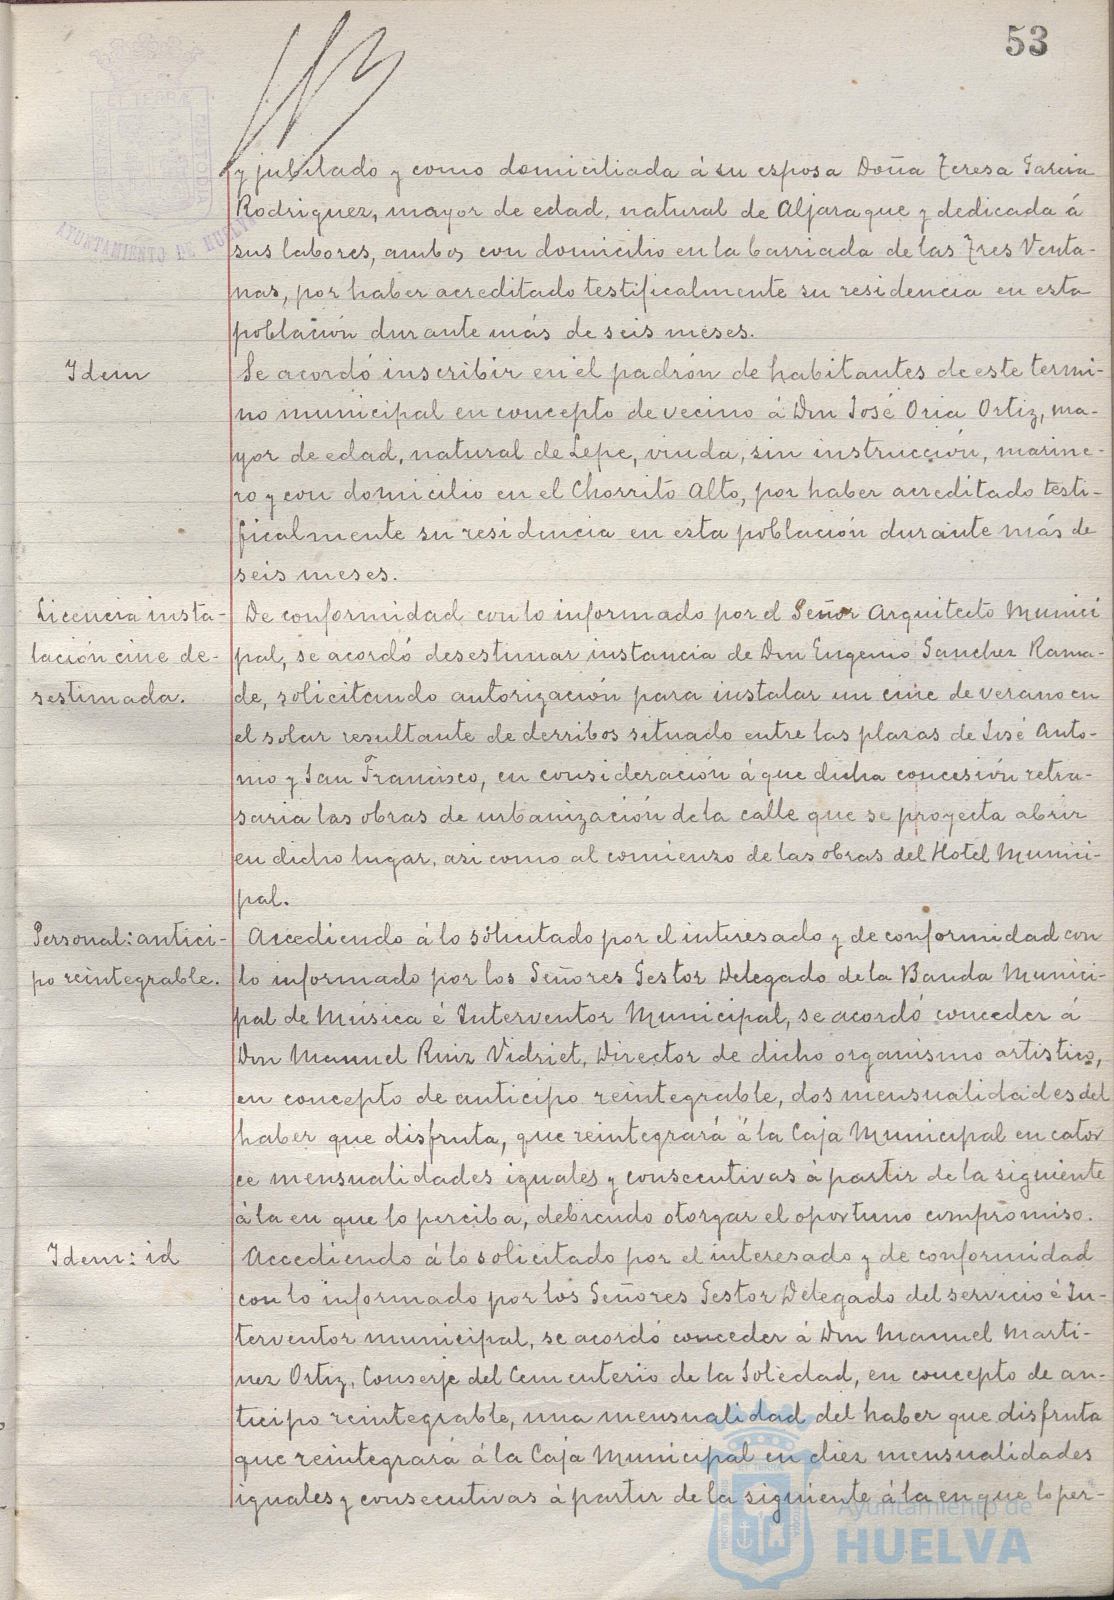 53
y jubilado y como domiciliada á su esposa Doña Teresa Garcia
Rodriguez, mayor de edad, natural de Aljaraque y dedicada á
sus labores, ambos con domicilio en la barriada de las Tres Venta-
nas, por haber acreditado testificalmente su residencia en esta
población durante más de seis meses.
Idem
Se acordó inscribir en el padrón de habitantes de este termi-
no municipal en concepto de vecino á Don José Oria Ortiz, ma-
yor de edad, natural de Lepe, viuda, sin instrucción, marine-
ro y con domicilio en el Chorrito Alto, por haber acreditado testi-
ficalmente su residencia en esta población durante más de
seis meses.
Licencia insta-
lación cine de-
sestimada.
De conformidad con lo informado por el Señor Arquitecto Munici
pal, se acordó desestimar instancia de Don Eugenio Sanchez Rama-
de, solicitando autorización para instalar un cine de verano en
el solar resultante de derribos situado entre las plazas de José Anto-
nio y San Francisco, en consideración á que dicha concesión retra-
saria las obras de urbanización de la calle que se proyecta abrir
en dicho lugar, asi como al comienzo de las obras del Hotel Munici-
pal.
Personal: antici-
po reintegrable.
Accediendo á lo solicitado por el interesado y de conformidad con
lo informado por los Señores Gestor Delegado de la Banda Munici-
pal de Música é Interventor Municipal, se acordó conceder á
Don Manuel Ruiz Vidriet, Director de dicho organismo artistico,
en concepto de anticipo reintegrable, dos mensualidades del
haber que disfruta, que reintegrará á la Caja Municipal en cator
ce mensualidades iguales y consecutivas á partir de la siguiente
á la en que lo perciba, debiendo otorgar el oportuno compromiso.
Idem: id
Accediendo á lo solicitado por el interesado y de conformidad
con lo informado por los Señores Gestor Delegado del servicio é In-
terventor municipal, se acordó conceder á Don Manuel Marti-
nez Ortiz, Conserje del Cementerio de la Soledad, en concepto de an-
ticipo reintegrable, una mensualidad del haber que disfruta
que reintegrará á la Caja Municipal en diez mensualidades
iguales y consecutivas á partir de la siguiente á la en que lo per-
AYUNTAMIENTO DE HUELVA
Ayuntamiento de
HUELVA